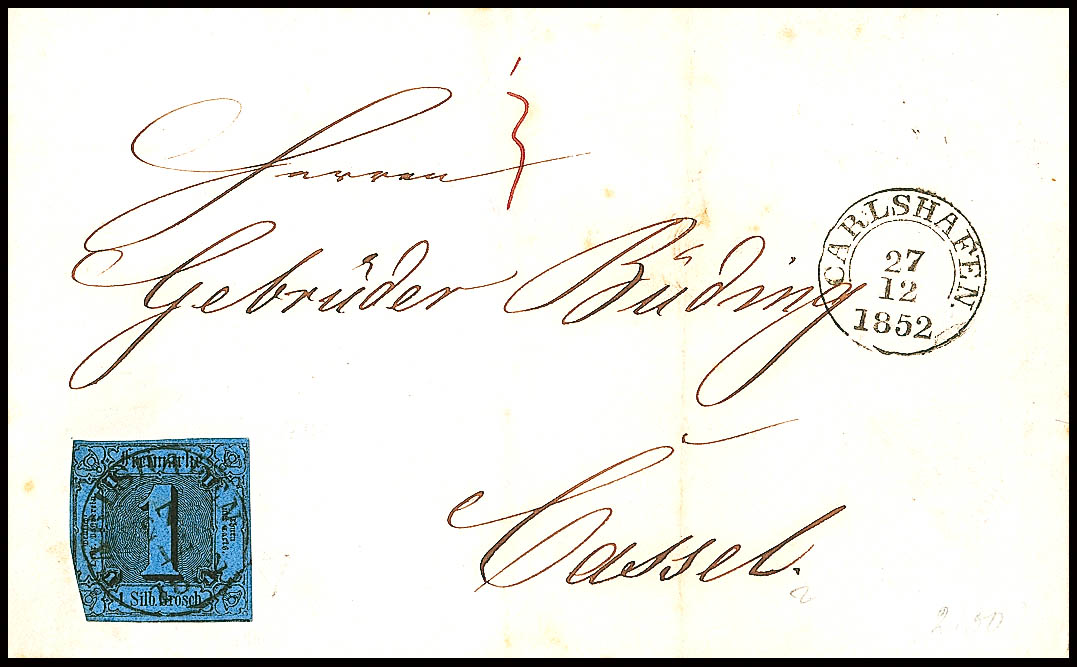 Herren
Gebrüder Büding
CARLSHAFEN.
27
12
1852
Cassel.
Freimarke
1
1 Silb Grosch
2.50